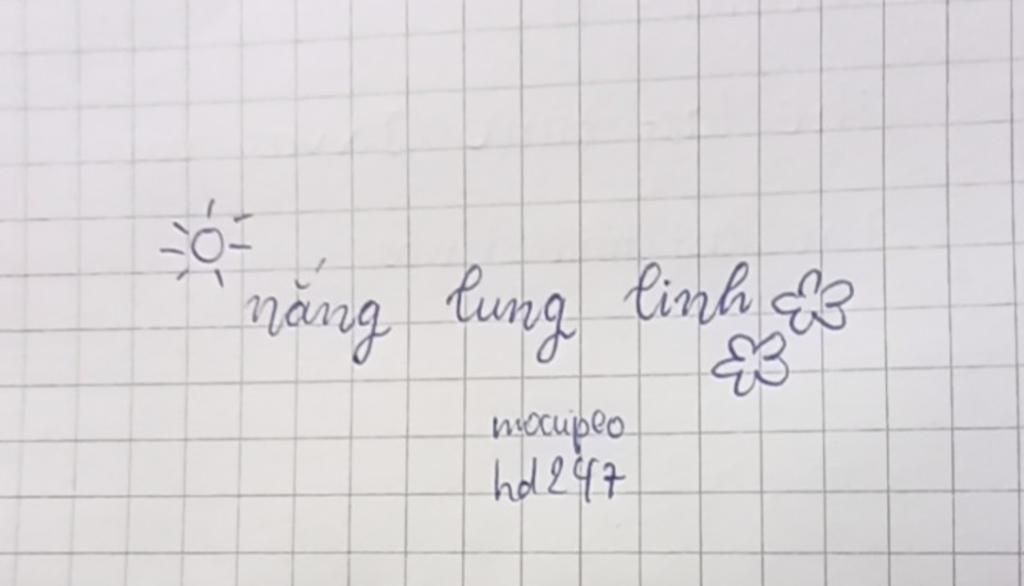 nắng lung linh
mocupeo
hd247